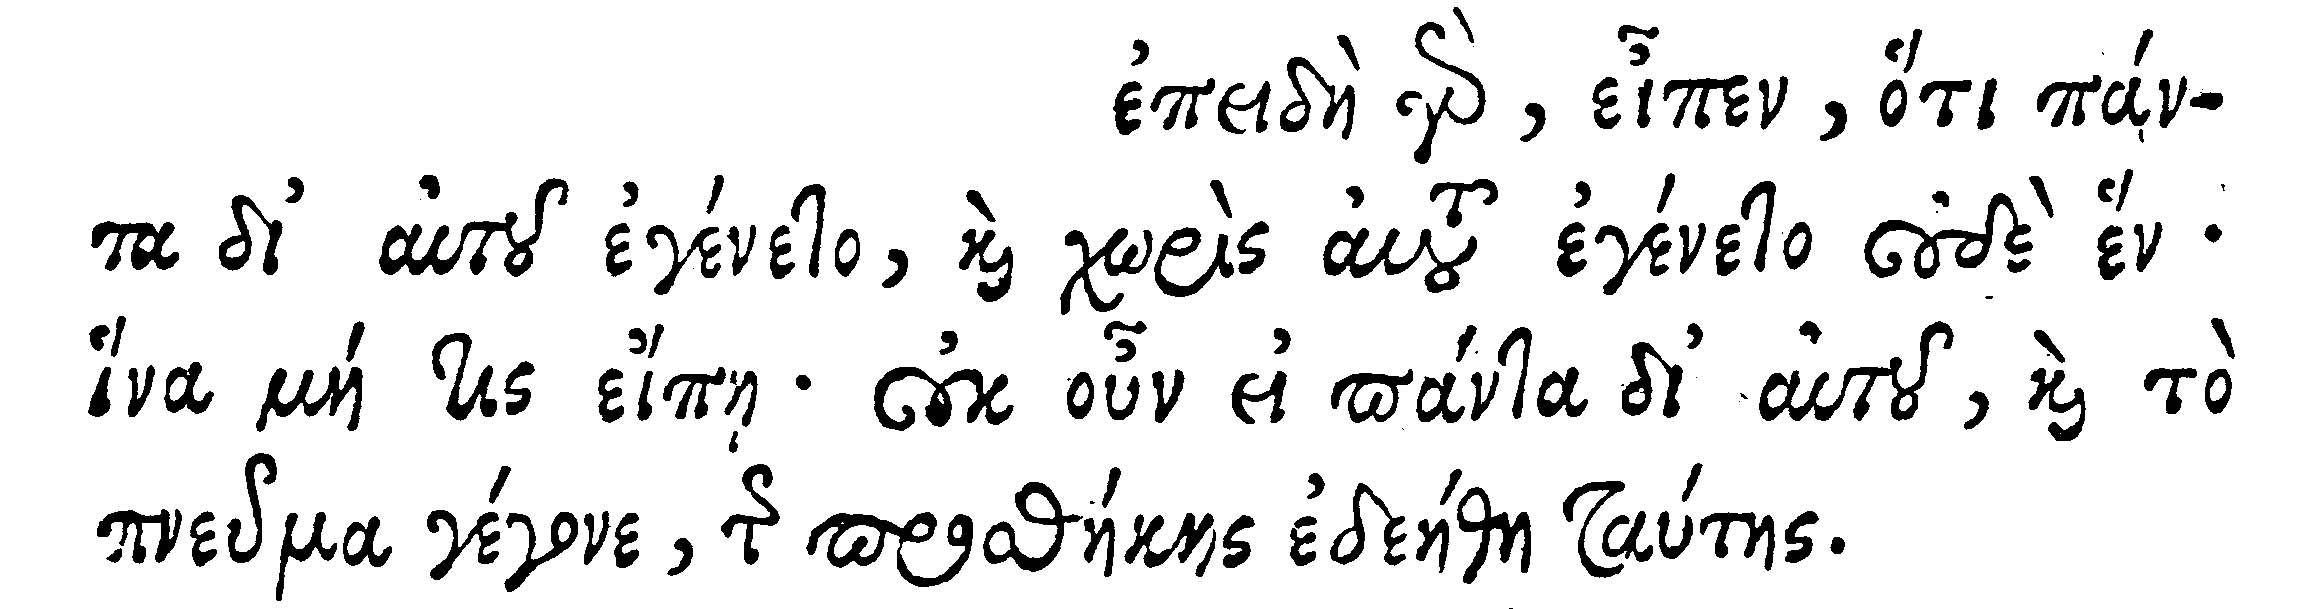 ἐπειδὴ γὰρ, εἶπεν, ὅτι πάν-
τα δι' αὐτοῦ ἐγένετο, καὶ χωρὶς αὐτοῦ ἐγένετο οὐδὲ ἕν·
ἵνα μή τις εἴπῃ· οὐκ οὖν εἰ πάντα δι' αὐτοῦ, καὶ τὸ
πνεῦμα γέγονε, τῆς προσθήκης ἐδεήθη ταύτης.